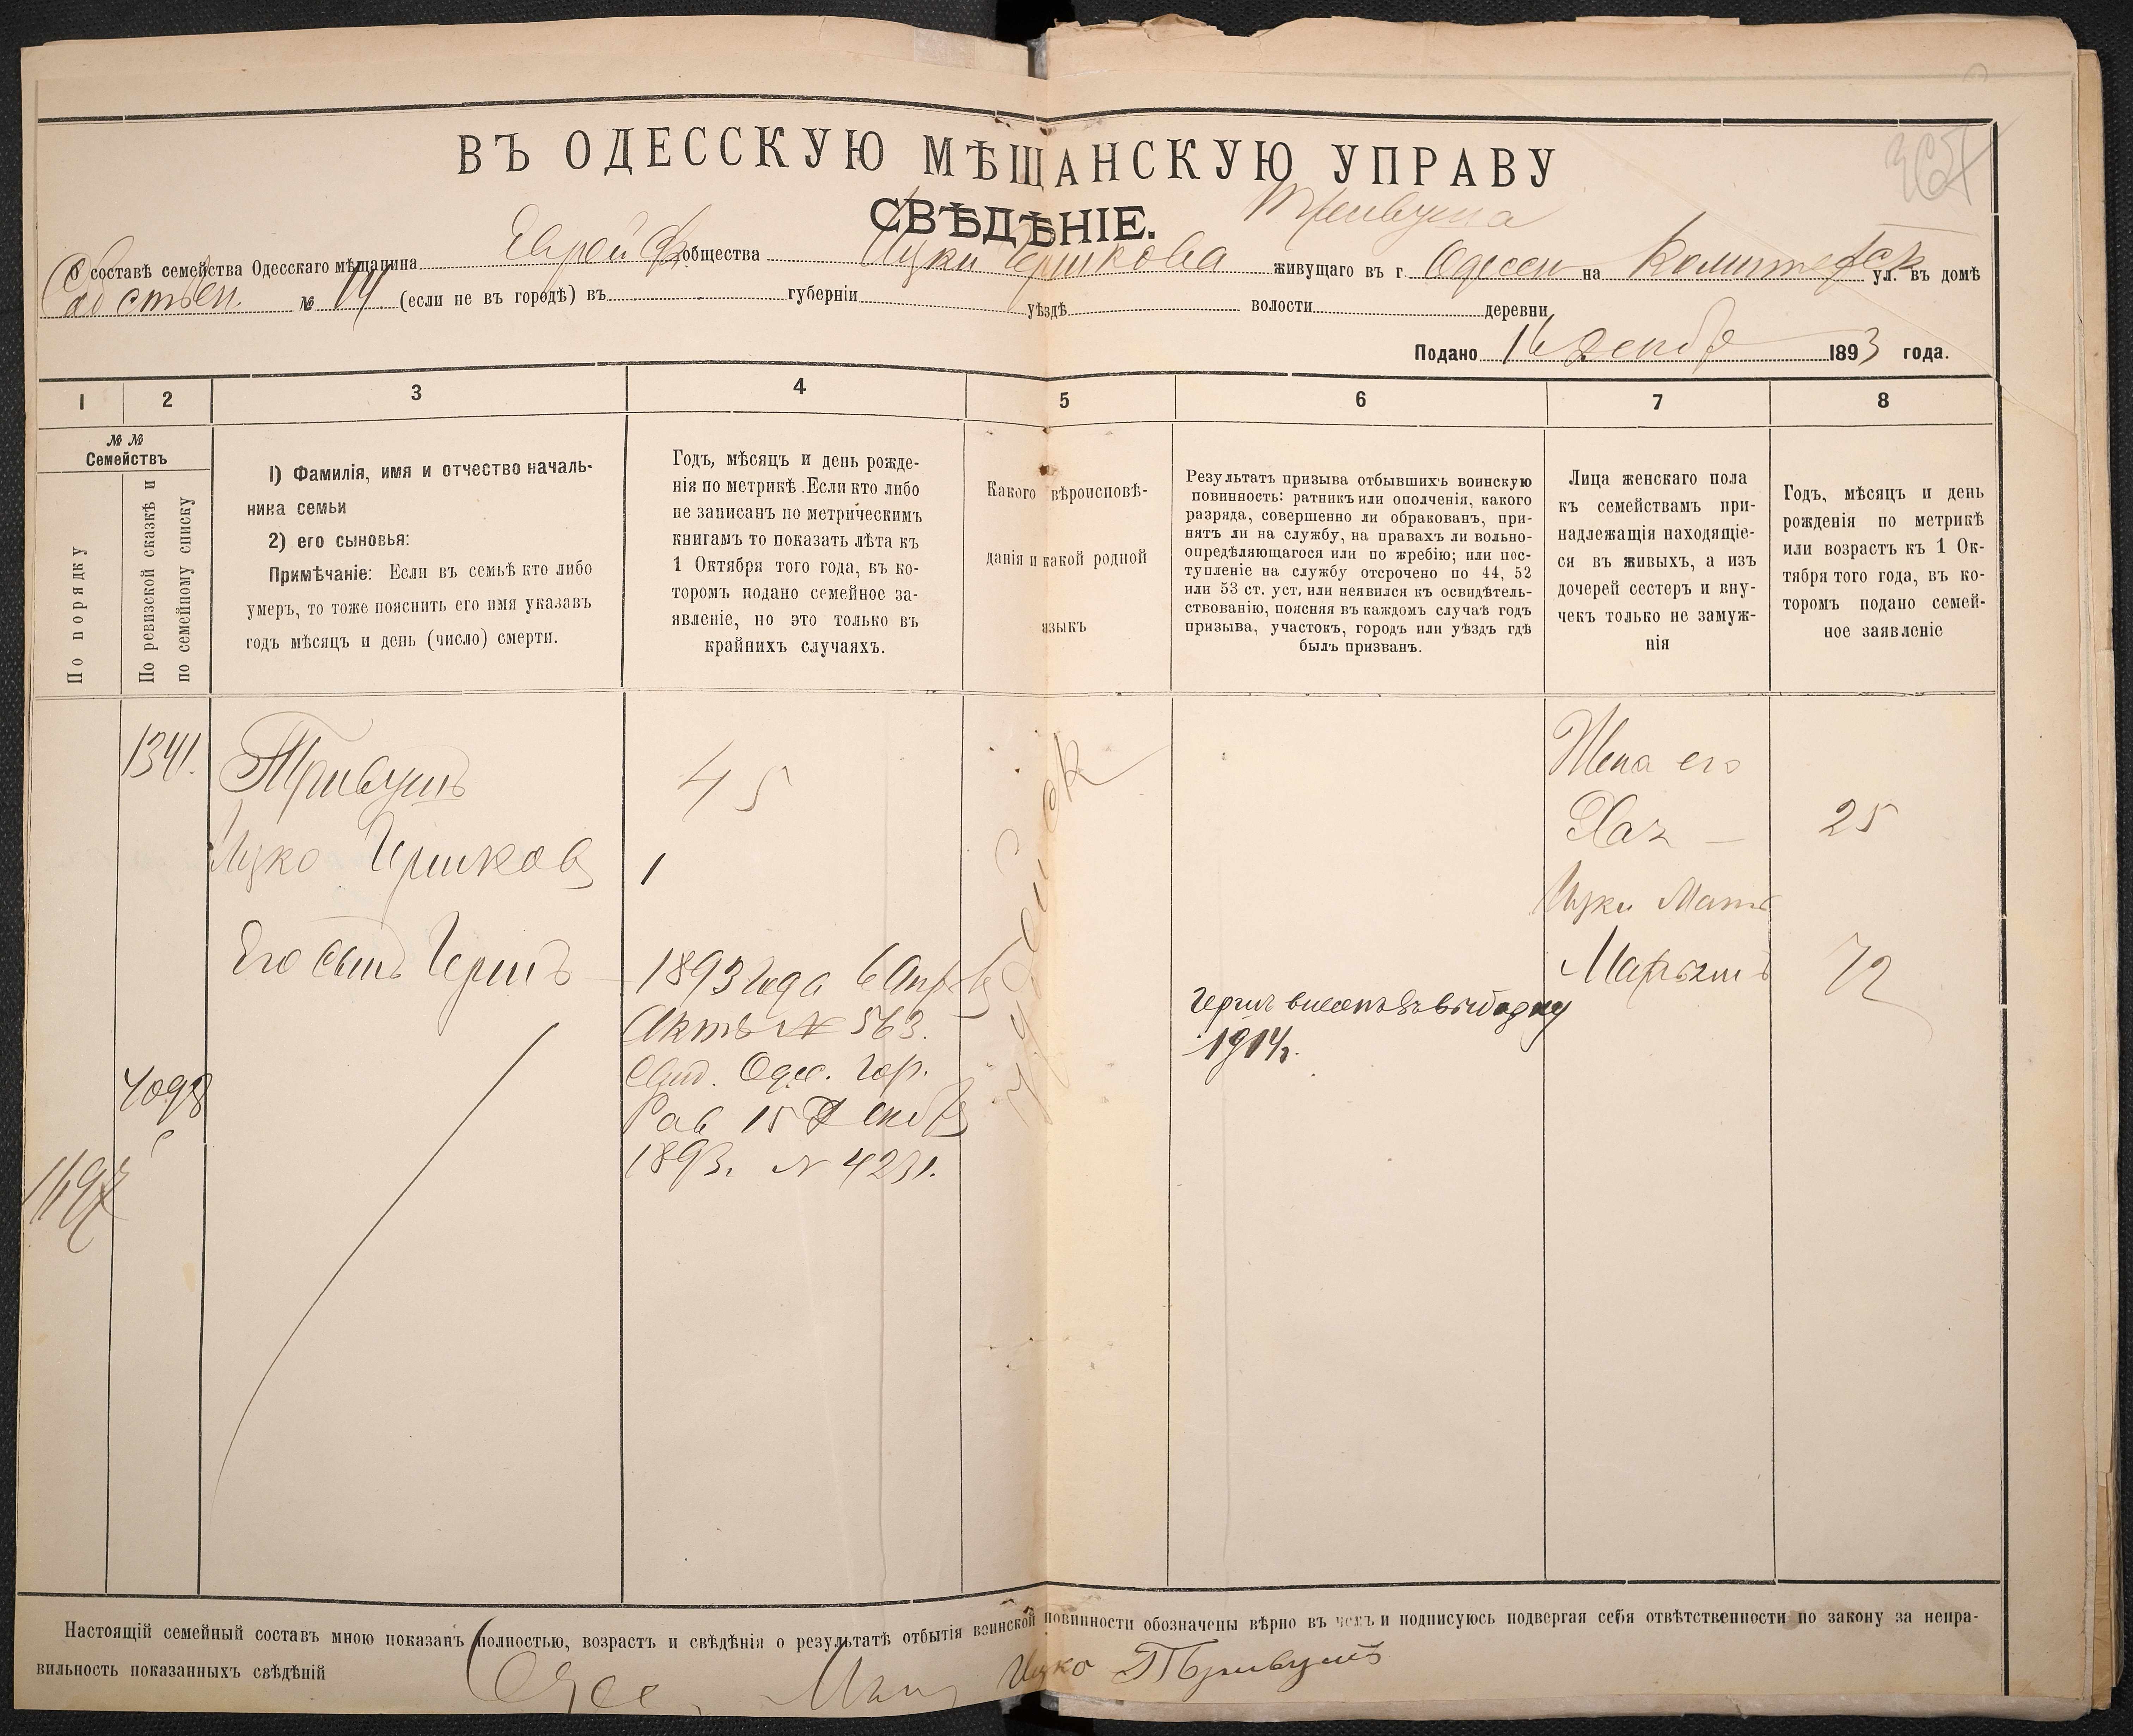 ВЪ ОДЕССКУЮ МѢЩАНСКУЮ УПРАВУ
СВѢДѢНІЕ.
Трибуша
О составѣ семейства Одесскаго мѣщанина Еврейск общества Ицки Гершкова живущаго въ г. Одессѣ на ул. въ домѣ
Собствен. № 14 (если не въ городѣ) въ губерніи уѣздѣ волости деревни
Подано 16 Декабр 1893 года.
1 2 3 4 5 6 7 8
№ №
Семействъ
По порядку
По ревизской сказкѣ и
по семейному списку
1) Фамилія, имя и отчество началь-
ника семьи
2) его сыновья:
Примѣчаніе: Если въ семьѣ кто либо
умеръ, то тоже пояснить его имя указавъ
годъ мѣсяцъ и день (число) смерти.
Годъ, мѣсяцъ и день рожде-
нія по метрикѣ. Если кто либо
не записанъ по метрическимъ
книгамъ то показать лѣта къ
1 Октября того года, въ ко-
торомъ подано семейное за-
явленіе, но это только въ
крайнихъ случаяхъ.
Какого вѣроисповѣ-
данія и какой родной
языкъ
Результатъ призыва отбывшихъ воинскую
повинность: ратникъ или ополченія, какого
разряда, совершенно ли обракованъ, при-
нятъ ли на службу, на правахъ ли вольно-
опредѣляющагося или по жребію; или пос-
тупленіе на службу отсрочено по 44, 52
или 53 ст. уст, или неявился къ освидѣтель-
ствованію, поясняя въ каждомъ случаѣ годъ
призыва, участокъ, городъ или уѣздъ гдѣ
былъ призванъ.
Лица женскаго пола
къ семействамъ при-
надлежащія находящіе-
ся въ живыхъ, а изъ
дочерей сестеръ и вну-
чекъ только не замуж-
нія
Годъ, мѣсяцъ и день
рожденія по метрикѣ
или возрастъ къ 1 Ок-
тября того года, въ ко-
торомъ подано семей-
ное заявленіе
1341.
Трибушъ
Ицко Гершков
45
Іудейск
Жена его
Хая —
25
Ицки Мать
72
Его сынъ Гершъ
1893 года 6 Апр
Актъ № 563.
Свид. Одес. Гор.
Рав 15 Декабр
1893 г. № 4231.
Гершъ внесенъ въ выборку
1914 г.
4098
Настоящій семейный составъ мною показанъ полностью, возрастъ и свѣдѣнія о результатѣ отбытія воинской повинности обозначены вѣрно въ чемъ и подписуюсь подвергая себя отвѣтственности по закону за непра-
вильность показанныхъ свѣдѣній
Одес. Мѣщ Ицко Трибушъ